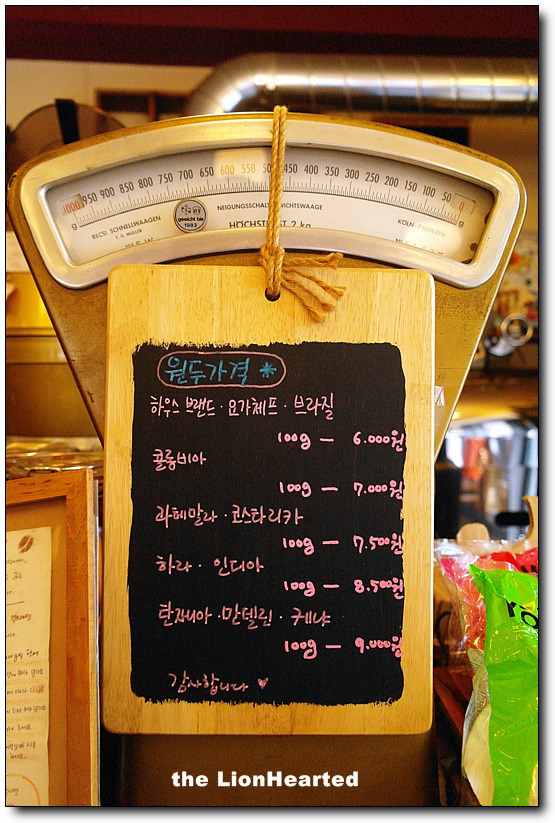 1000 950 900 850 800 750 700 650 600 550 500 450 400 350 300 250 200 150 100 50 0
g g
geeicht bis
1983
RECSI SCHNELLWAAGEN
NEIGUNGSSCHALT
HÖCHST 2 kg
원두가격 *
하우스 브랜드 · 요가체프 · 브라질
100g — 6.000원
콜롬비아
100g — 7.000원
과테말라 · 코스타리카
100g — 7.500원
하라 · 인디아
100g — 8.500원
탄자니아 · 만델린 · 케냐
100g — 9.000원
감사합니다 ♥
the LionHearted